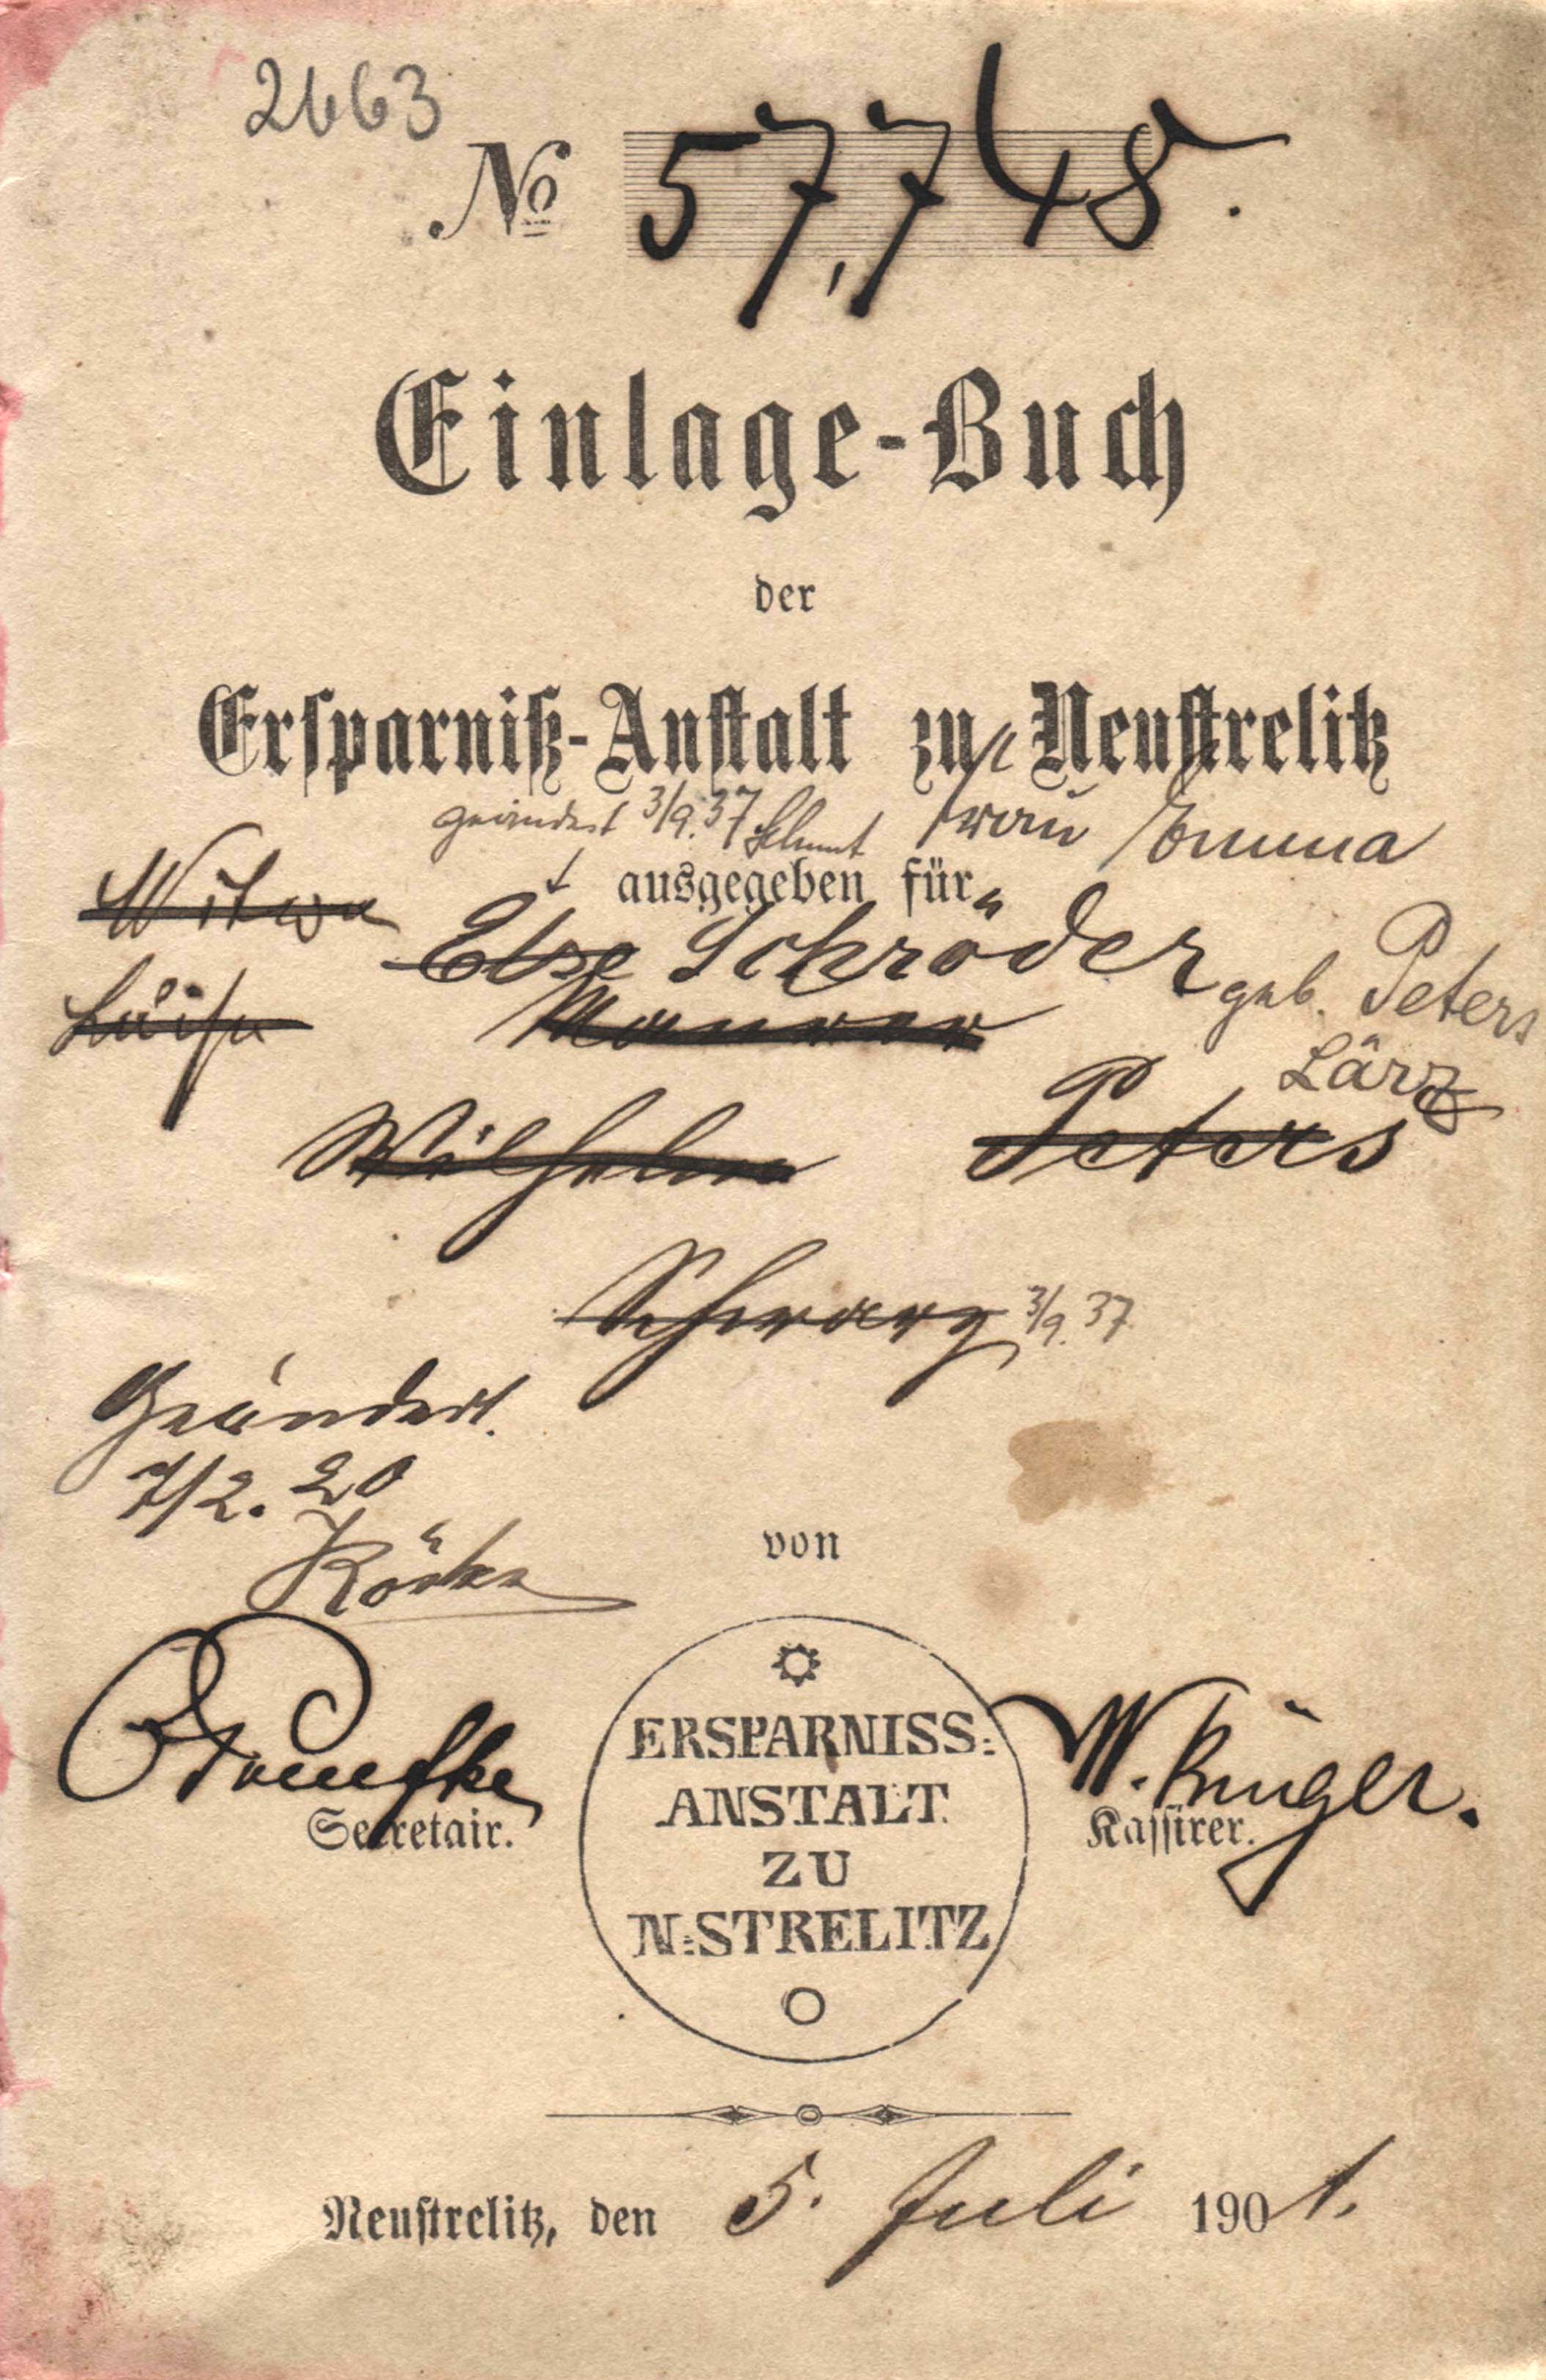 2663
№ 57,748.
Einlage-Buch
der
Ersparniß-Anstalt zu Neustrelitz
geändert 3/9. 37 Frau Emma
ausgegeben für
Witwe Else Schröder geb. Peters
Luise Maurer Lärz
Wilhelm Peters
Schwarz 3/9. 37
Geändert.
7/2. 20
von
ERSPARNISS:
ANSTALT
ZU
N:STRELITZ
W. Krüger.
Secretair. Kassirer.
Neustrelitz, den 5. Juli 1901.